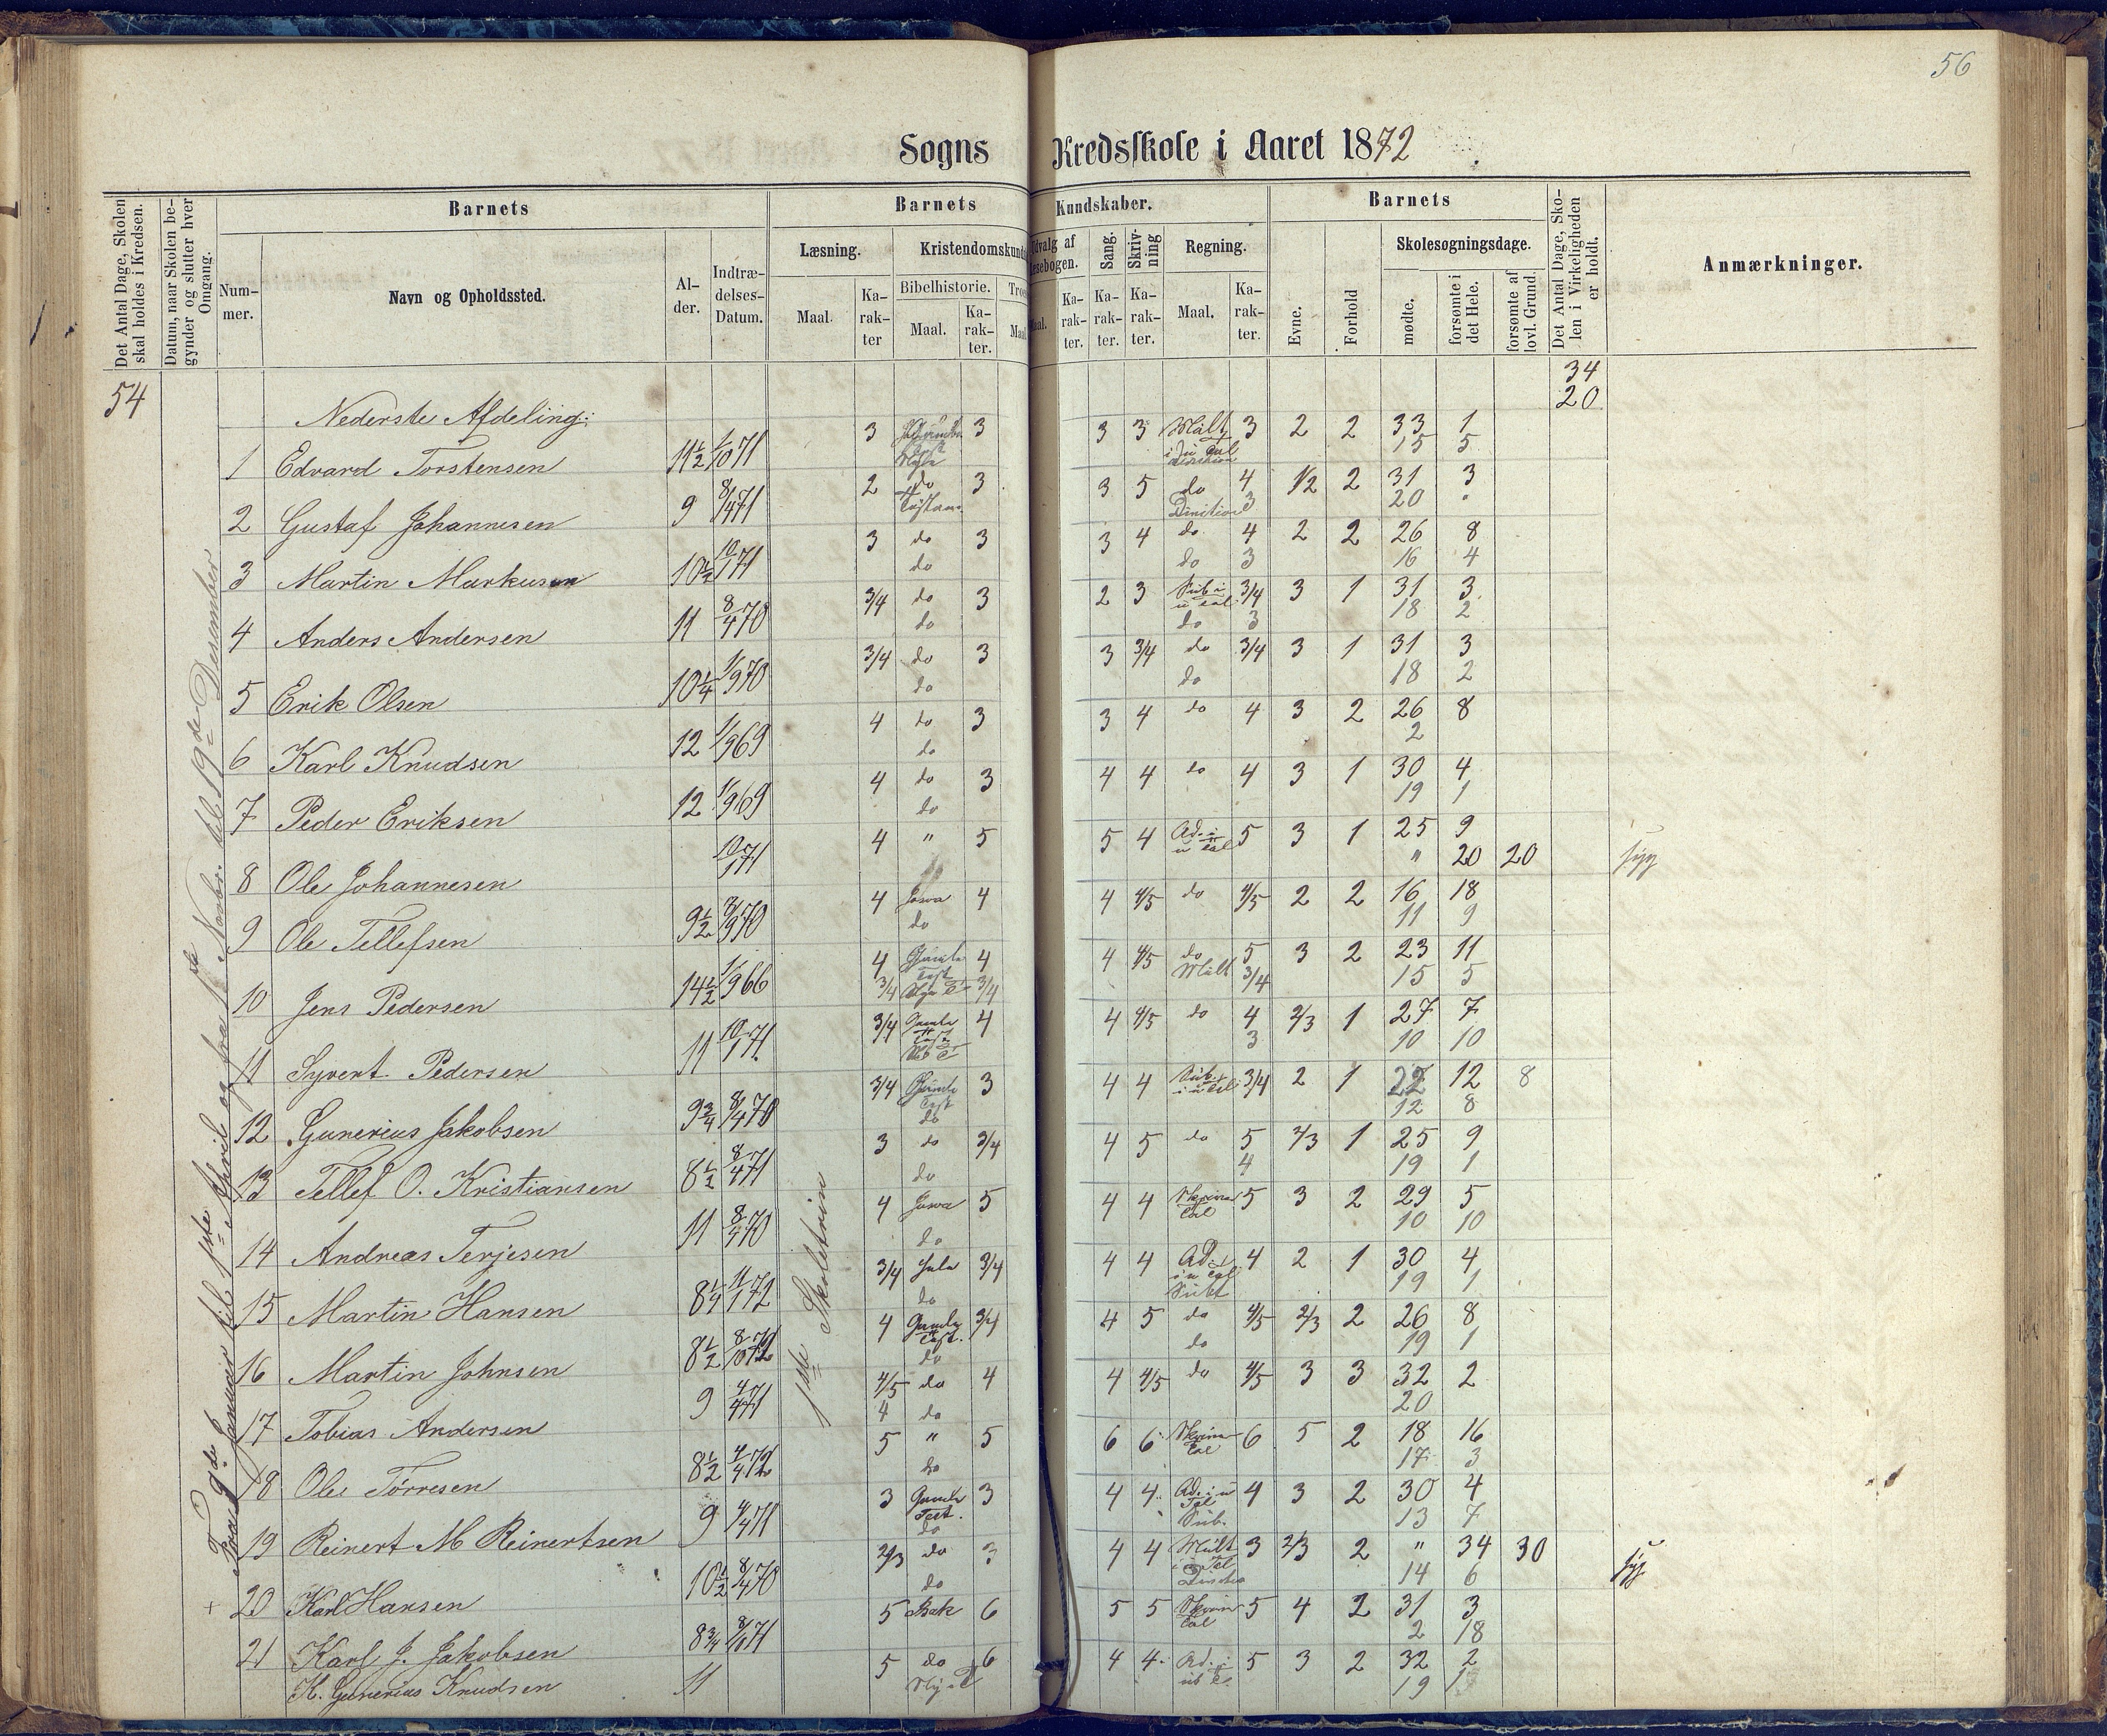 56
Sogns Kredsskole i Aaret 1872
Det Antal Dage, Skolen skal holdes i Kredsen.
Datum, naar Skolen begynder og slutter hver Omgang.
Barnets
Nummer.
Navn og Opholdssted.
Alder.
Indtrædelses-Datum.
Barnets Kundskaber.
Læsning.
Maal.
Karakter
Kristendomskund
Bibelhistorie.
Maal.
Karakter.
Troe
Maal
Udvalg af
Læsebogen.
Maal.
Karakter.
Sang.
Karakter.
Skrivning
Karakter.
Regning.
Maal.
Karakter.
Barnets
Evne.
Forhold
Skolesøgningsdage.
mødte.
forsømte i det Hele.
forsømte af lovl. Grund.
Det Antal Dage, Skolen i Virkeligheden er holdt.
Anmærkninger.
54
34
20
Fra 9de Januar til 1ste April og fra 1ste Novbr. til 19de Desember
1ste Skoletrin
Nederste Afdeling:
1 Edvard Torstensen 11½ 1/10 71 3 3 3 3 Mult 3 2 2 33 1
15 5
2 Gustaf Johannesen 9 8/4 71 2 do 3 3 5 do 4 1/2 2 31 3
3 20
3 Martin Markusen 10½ 10/1 71 3 do 3 3 4 do 4 2 2 26 8
do do 3 16 4
4 Anders Andersen 11 8/4 70 3/4 do 3 2 3 3/4 3 1 31 3
do do 3 18 2
5 Erik Olsen 10¼ 1/9 70 3/4 do 3 3 3/4 do 3/4 3 1 31 3
do do 18 2
6 Karl Knudsen 12 1/9 69 4 do 3 3 4 do 4 3 2 26 8
do 2
7 Peder Eriksen 12 1/9 69 4 do 3 4 4 do 4 3 1 30 4
do 19 1
8 Ole Johannesen 10/1 71 4 " 5 5 4 5 3 1 25 9
" 20 20 syg
9 Ole Tellefsen 9½ 8/9 70 4 4 4 4/5 do 4/5 2 2 16 18
do 11 9
10 Jens Pedersen 14½ 1/9 66 4 4 4 4/5 do 5 3 2 23 11
3/4 3/4 Mult 3/4 15 5
11 Syvert Pedersen 11 10/1 71 3/4 4 4 4/5 do 4 2/3 1 27 7
3 10 10
12 Gunerius Jakobsen 9¾ 8/4 70 3/4 3 4 4 3/4 2 1 22 12 8
do 12 8
13 Tellef O. Kristiansen 8½ 8/4 71 3 do 3/4 4 5 do 5 2/3 1 25 9
do 4 19 1
14 Andreas Terjesen 11 8/4 70 4 5 4 4 5 3 2 29 5
do 10 10
15 Martin Hansen 8¼ 11/1 72 3/4 3/4 4 4 4 2 1 30 4
do 19 1
16 Martin Johnsen 8½ 4 3/4 4 5 do 4/5 2/3 2 26 8
do do 19 1
17 Tobias Andersen 9 4/4 71 4/5 do 4 4 4/5 do 4/5 3 3 32 2
4 do 20
18 Ole Tørresen 8½ 4/4 72 5 " 5 6 6 6 5 2 18 16
do 17 3
19 Reinert M Reinertsen 9 4/4 71 3 Gamle Test. 3 4 4 4 3 2 30 4
do 13 7
20 Karl Hansen 10½ 8/4 70 2/3 do 3 4 4 Mult 3 2/3 2 " 34 30 syg
do 14 6
21 Karl J. Jakobsen 8¾ 5 6 5 5 5 4 2 31 3
2 18
K. Gunerius Knudsen 11 5 do 6 4 4 5 3 2 32 2
19 1